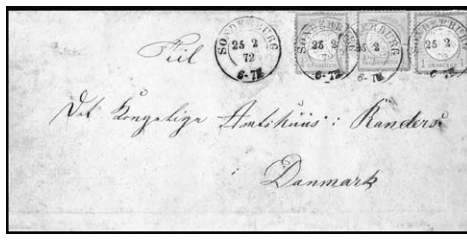 SONDERBURG 25 2 72 6-7N
SONDERBURG 25 2 72 6-7N
SONDERBURG 25 2 72 6-7N
SONDERBURG 25 2 72 6-7N
1
Det Kongelige Amtshuus i Randers
Danmark